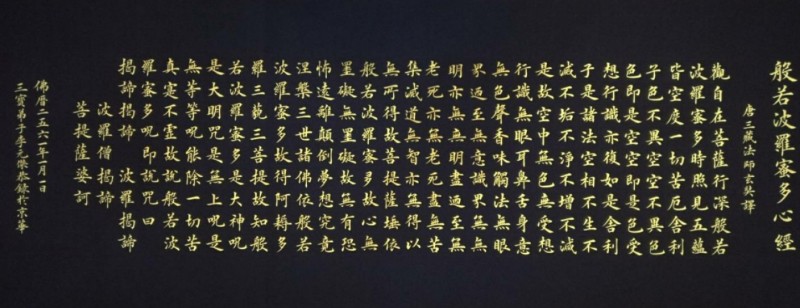 般若波羅蜜多心經
唐三藏法師玄奘譯
觀自在菩薩行深般若
波羅蜜多時照見五蘊
皆空度一切苦厄舍利
子色不異空空不異色
色即是空空即是色受
想行識亦復如是舍利
子是諸法空相不生不
滅不垢不淨不增不減
是故空中無色無受想
行識無眼耳鼻舌身意
無色聲香味觸法無眼
界迺至無意識界無無
明亦無無明盡迺至無
老死亦無老死盡無苦
集滅道無智亦無得以
無所得故菩提薩埵依
般若波羅蜜多故心無
罣礙無罣礙故無有恐
怖遠離顛倒夢想究竟
涅槃三世諸佛依般若
波羅蜜多故得阿耨多
羅三藐三菩提故知般
若波羅蜜多是大神呪
是大明呪是無上呪是
無等等呪能除一切苦
真實不虛故說般若波
羅蜜多呪即說呪曰
揭諦揭諦 波羅揭諦
波羅僧揭諦
菩提薩婆訶
佛曆二五六一年一月一日
三寶弟子李 恭錄於京華